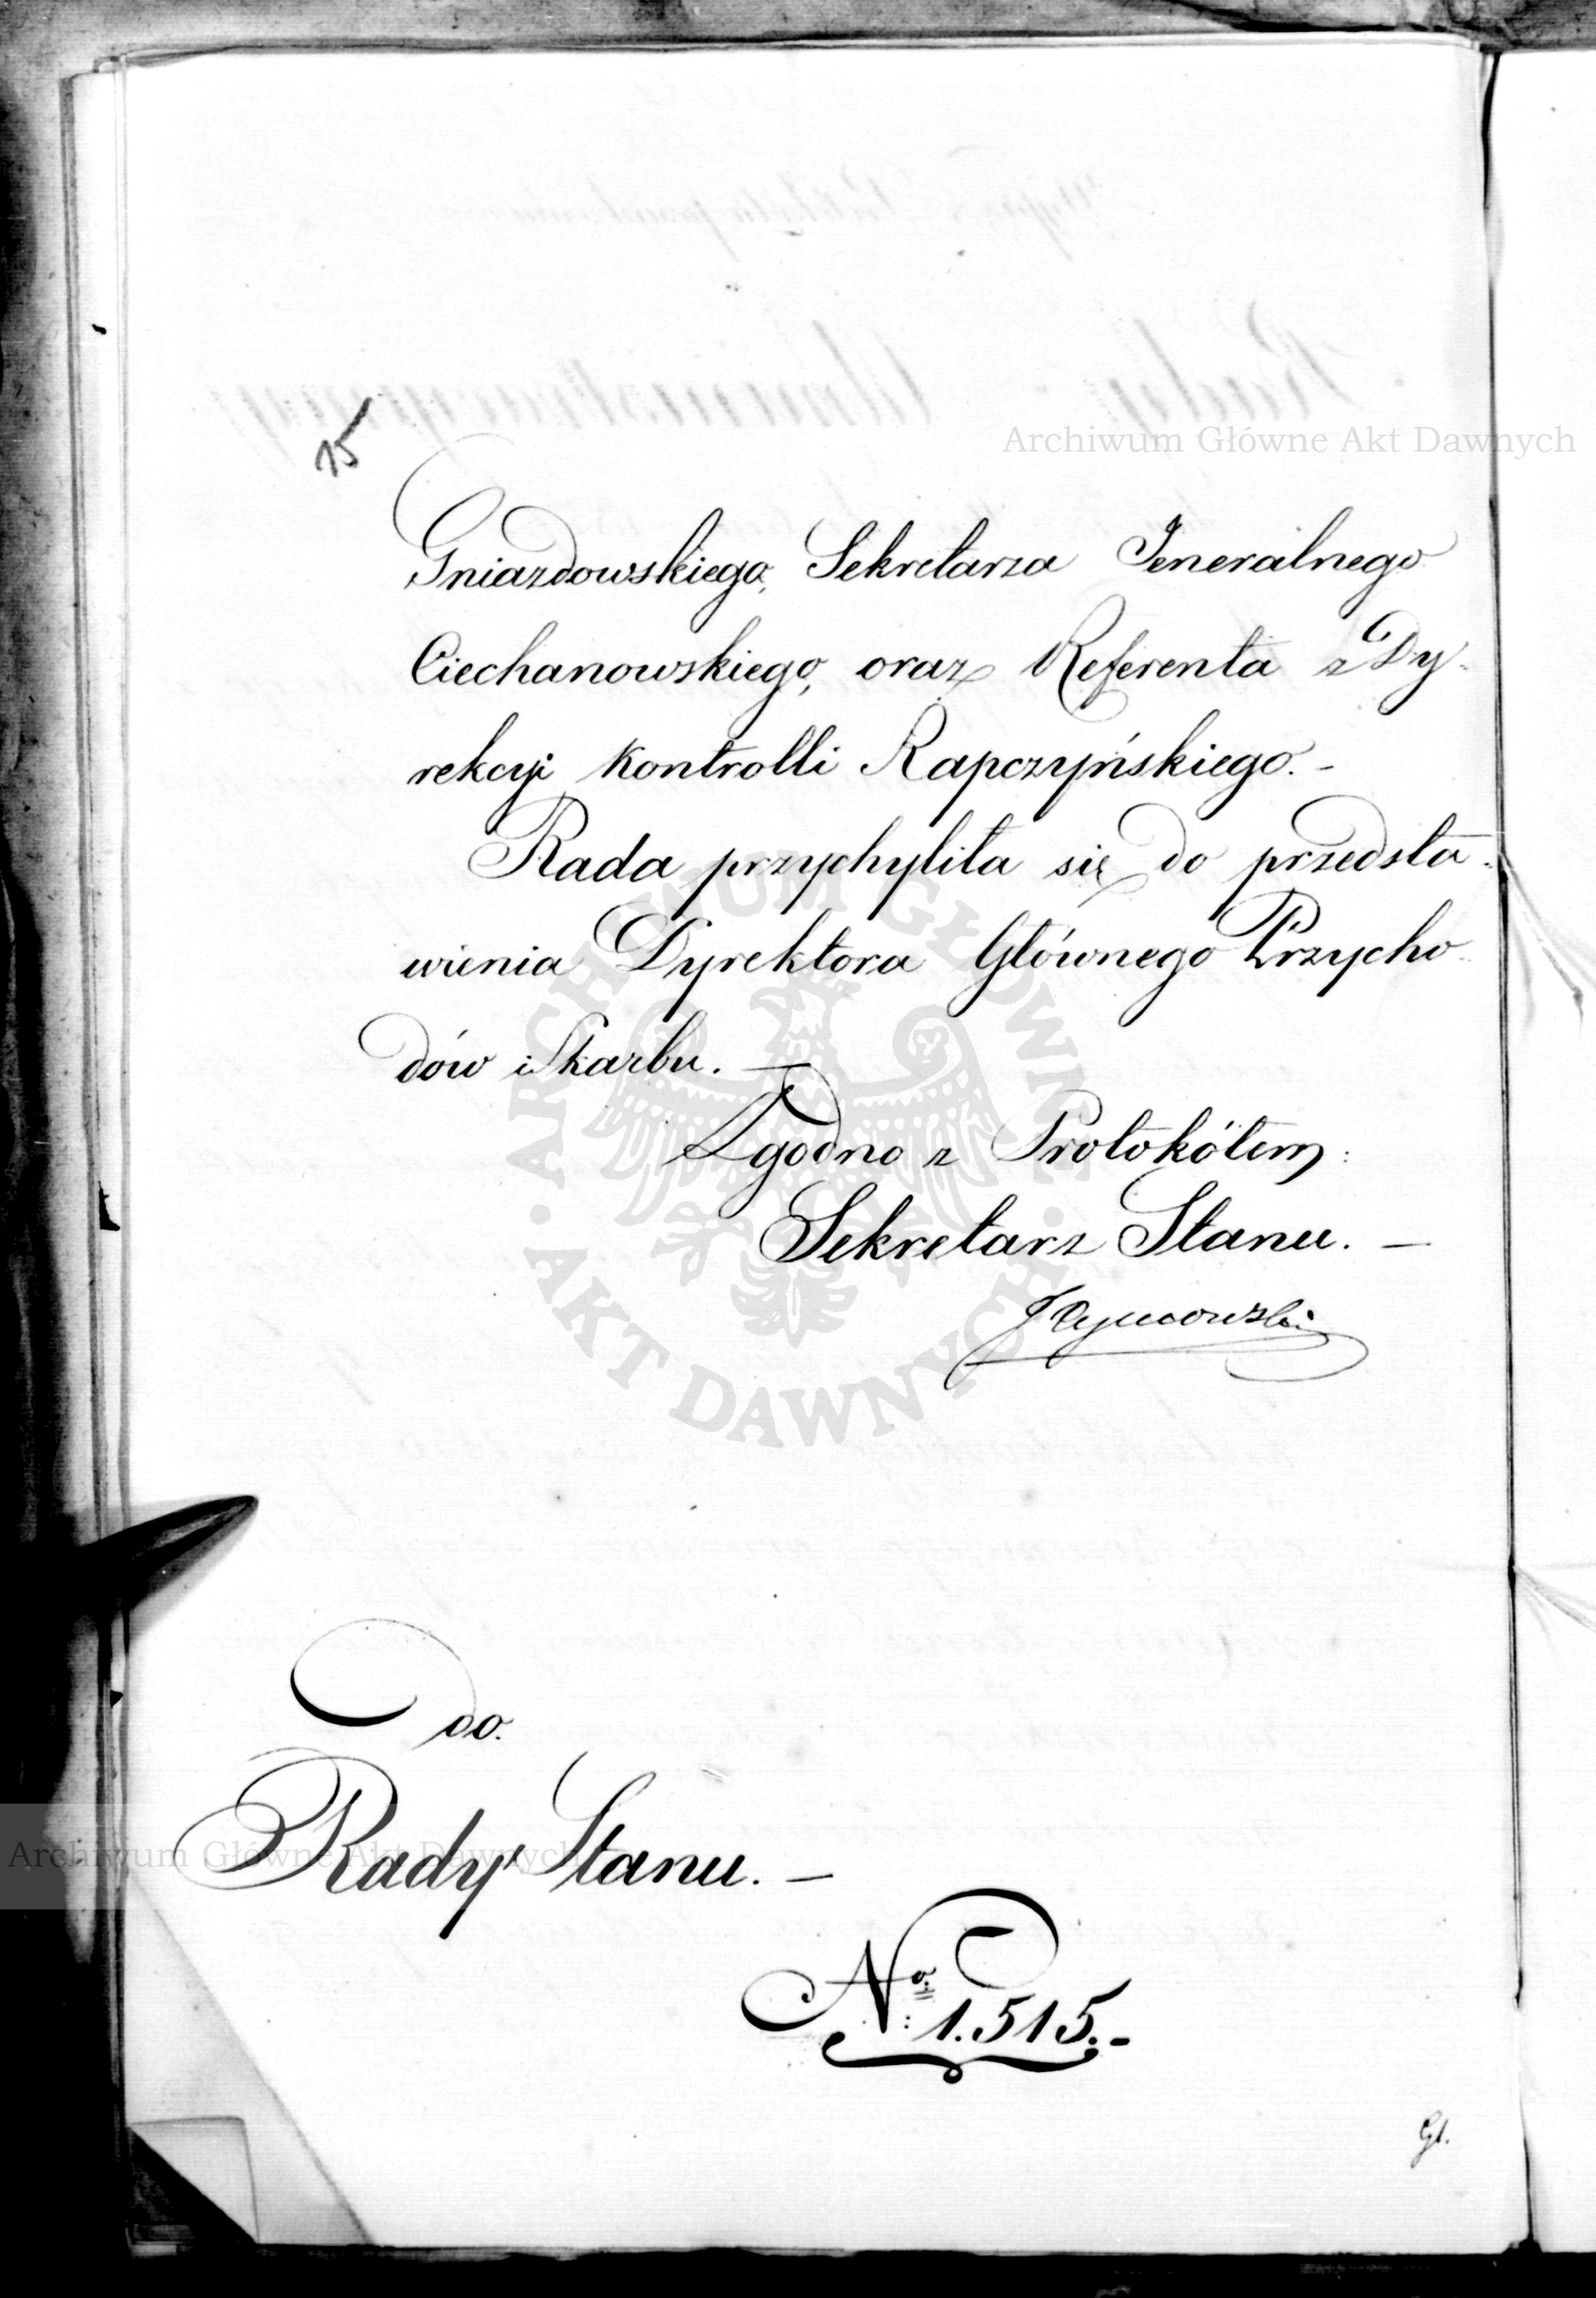 15
Archiwum Główne Akt Dawnych
Gniazdowskiego, Sekretarza Jeneralnego
Ciechanowskiego, oraz Referenta z Dy-
rekcyi Kontrolli Rapczyńskiego. -
Rada przychyliła się do przedsta-
wienia Dyrektora Głównego Przycho-
dów i Skarbu. —
Zgodno z Protokółem:
Sekretarz Stanu. —
JTymowski
ARCHIWUM GŁÓWNE AKT DAWNYCH
do.
Rady Stanu. —
Archiwum Główne Akt Dawnych
No: 1.515. -